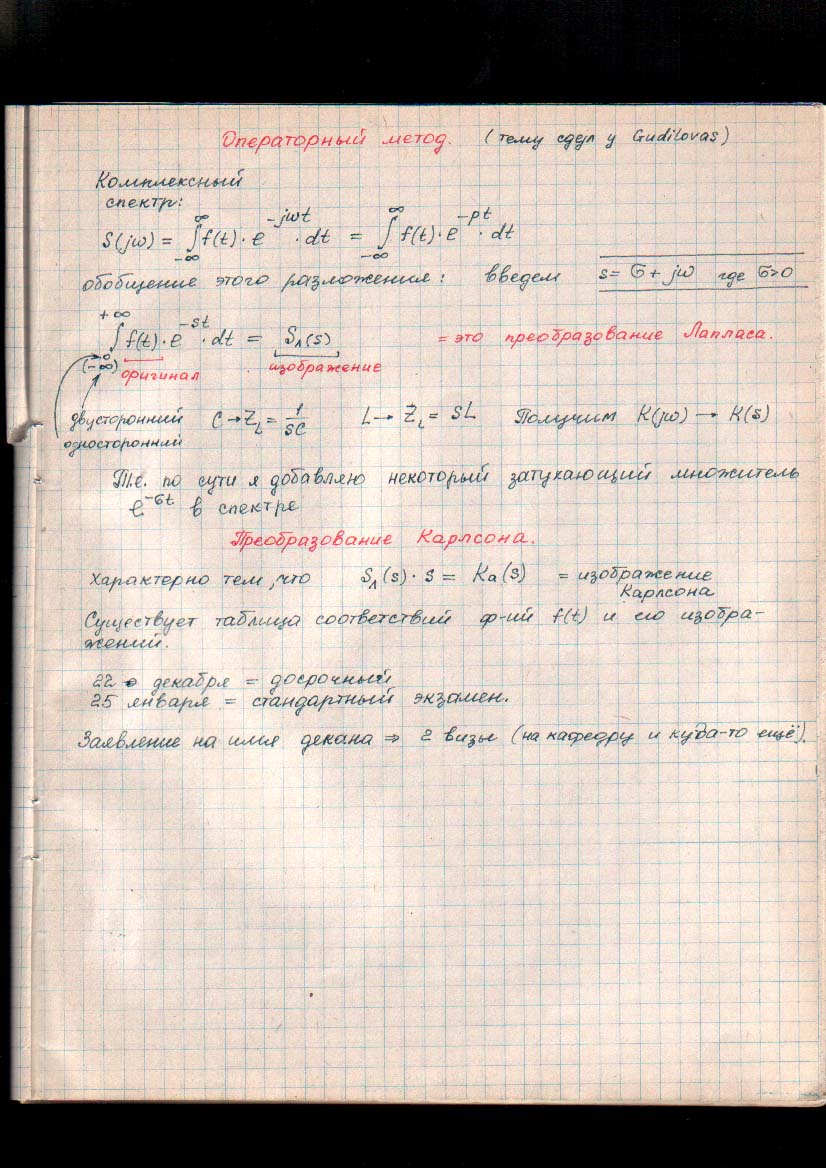 Операторный метод. (тему сдул у Gudilovas)
Комплексный
спектр:
S(jω) = ∫_{-∞}^{∞} f(t)·e^{-jωt}·dt = ∫_{-∞}^{∞} f(t)·e^{-pt}·dt
обобщение этого разложения: введем s = σ + jω где σ>0
∫_{0 (-∞)}^{+∞} f(t)·e^{-st}·dt = S_Λ(s) = это преобразование Лапласа.
оригинал изображение
двусторонний C → Z_L = 1/sC L → Z_L = sL Получим K(jω) → K(s)
односторонний
Т.е. по сути я добавляю некоторый затухающий множитель
e^{-σt} в спектре
Преобразование Карлсона.
Характерно тем, что S_Λ(s)·s = Ka(s) = изображение
Карлсона
Существует таблица соответствий ф-ий f(t) и его изобра-
жений.
22 декабря = досрочный
25 января = стандартный экзамен.
Заявление на имя декана ⇒ 2 визы (на кафедру и куда-то ещё).